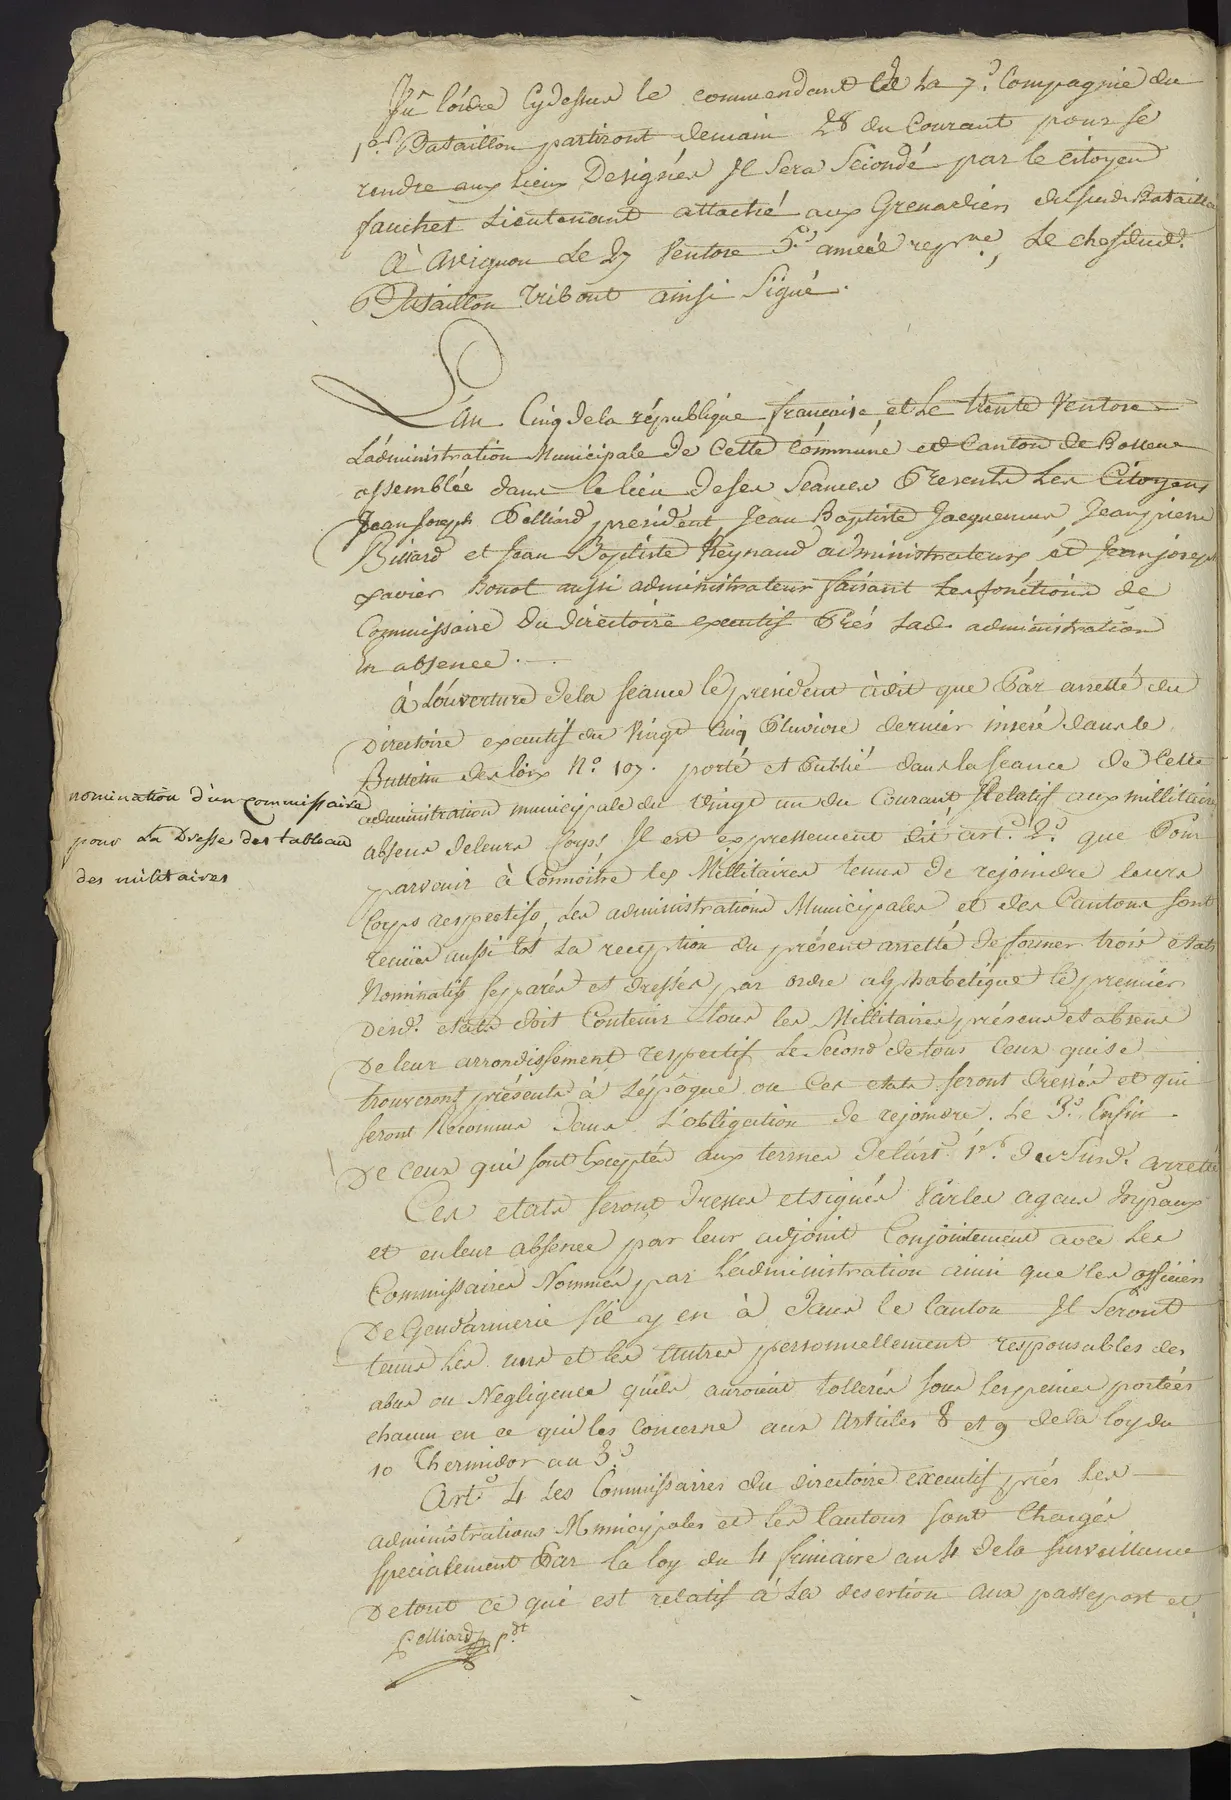 Sur l'ordre Cy dessus le commendant de La 7.e Compagnie du
1er Bataillon partiront demain 28 du Courant pour se
rendre aux lieux Designés Il sera Secondé par le citoyen
fauchet Lieutenant attaché aux Grenadiers du susd. Bataillon
à avignon Le 27 Ventose 5.e année repne, Le chef dud.
Bataillon Tribout ainsi Signé.
L'an Cinq de la république française, et Le trente Ventose
L'administration Municipale de Cette Commune et Canton de Bollene
assemblée dans le lieu de ses Seances Presents Les Citoyens
Jean Joseph Polliard president, Jean Baptiste Jacquemus, Jean pierre
Billard et Jean Baptiste Reynaud administrateurs et Jean joseph
xavier Bonot aussi administrateur faisant Les fonctions de
Commissaire Du directoire executif Prés Lad. administration
en absence.
à L'ouverture de la seance le president à dit que Par arretté du
Directoire executif du Vingt Cinq Pluviose dernier inseré dans le
Bulletin des loix N.o 107. porté et Publié dans la seance de Cette
nomination d'un commissaire
pour La Dresse des tableau
des militaires
administration municipale du vingt un du Courant Relatif aux millitaires
absens de leurs Corps Il est expressement dit art. 2.e que Pour
parvenir à Connoitre les Millitaires tenus de rejoindre leurs
Corps respectifs, Les administrations Municipales et des Cantons sont
tenues aussi tot La reception du présent arretté de former trois etats
Nominatifs separés et dressés par ordre alphabétique le premier
Desd. etats doit Contenir tous les Millitaires présens et absens
De leur arrondissement respectif Le Second de tous Ceux qui se
trouveront présents à L'époque ou Ces etats seront dressés et qui
seront Reconnus dans L'obligation de rejoindre. Le 3.e Enfin
De ceux qui sont Exceptés aux termes de l'art. 1er du Susd. arretté
Ces etats seront dressés et signés Par les agens Mpaux
et en leur absence par leur adjoint Conjointement avec Les
Commissaires Nommés par L'administration ainsi que les officiers
De Gendarmerie s'il y en à dans le Canton Il Seront
tenus Les uns et les autres personnellement responsables des
abus ou Negligence qu'ils auroient tollerés sous les peines portées
chacun en ce qui les Concerne aux Articles 8 et 9 de la loy du
10 Thermidor an 3.e
Art. 4 Les Commissaires du directoire executif prés Les
administrations Municipales et Les Cantons sont Chargés
specialement Par la loy du 4 frimaire an 4 de la surveillance
De tout ce qui est relatif à La desertion aux passeport et
Polliard Pdt